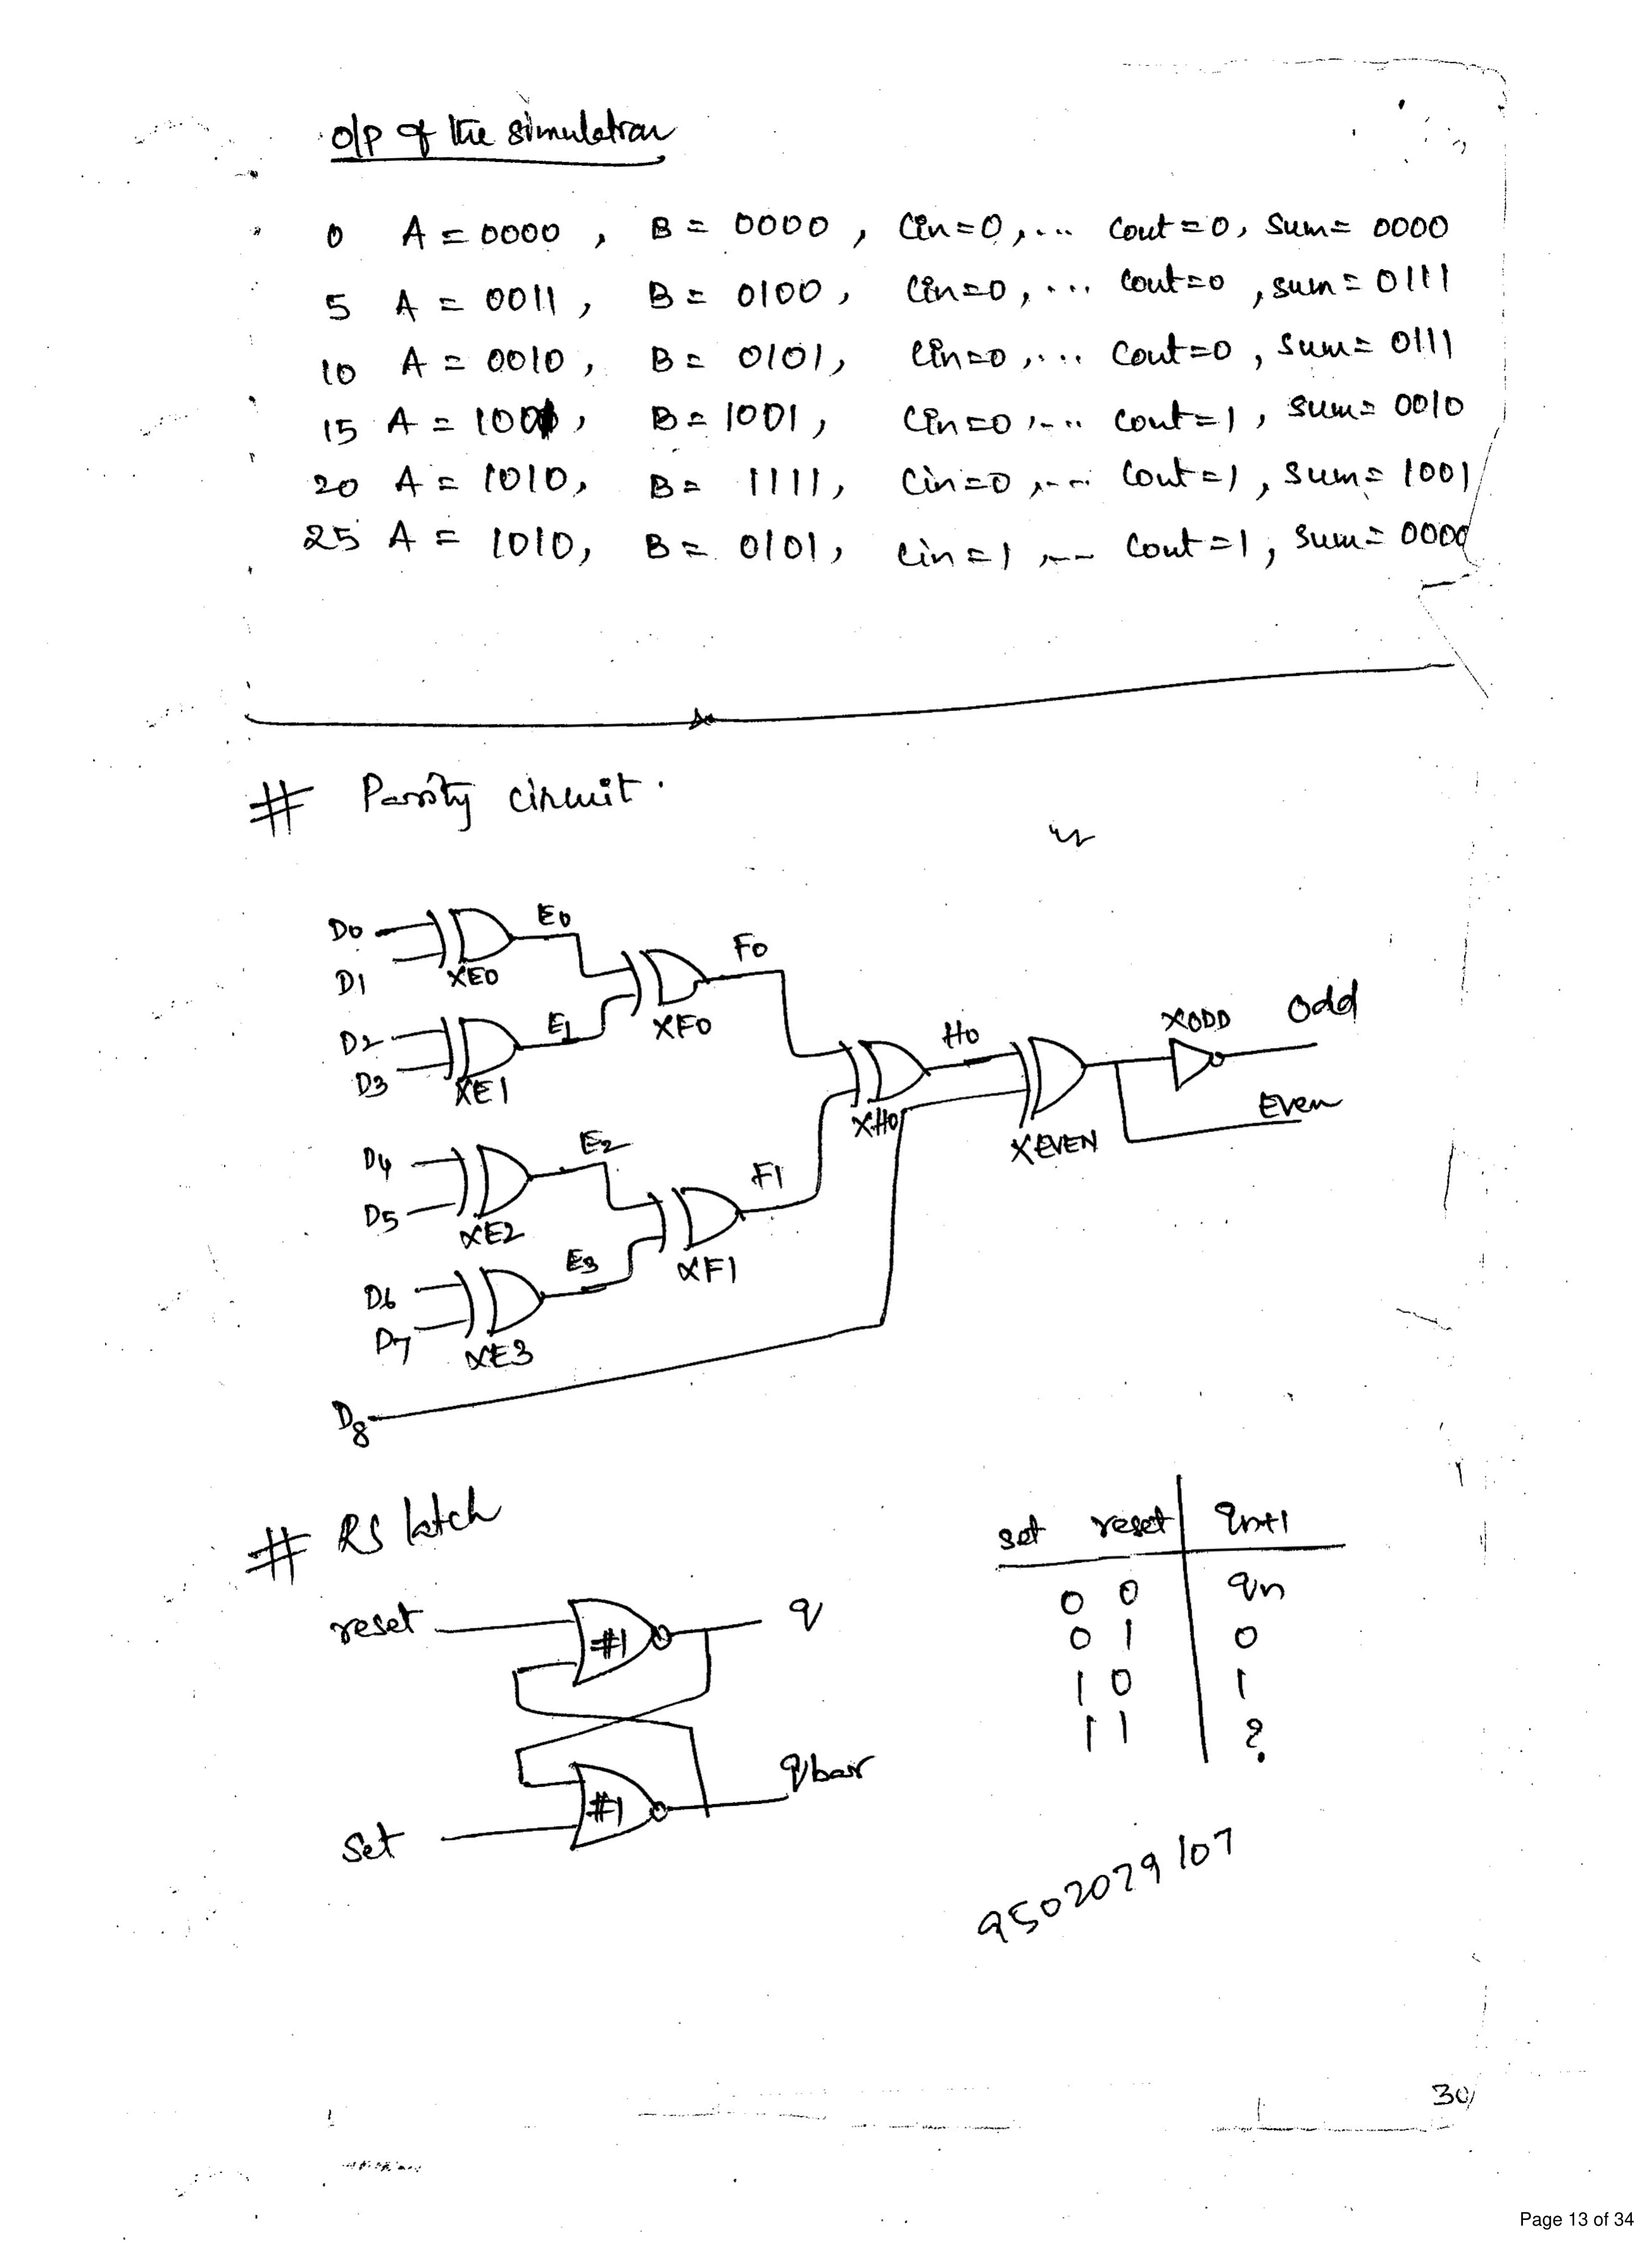 o/p of the simulation
0 A = 0000 , B = 0000 , Cin=0,... Cout=0, Sum= 0000
5 A = 0011 , B = 0100 , Cin=0, ... Cout=0 , sum= 0111
10 A = 0010 , B = 0101, Cin=0,... Cout=0 , Sum= 0111
15 A = 1001, B = 1001 , Cin=0,... Cout=1 , sum= 0010
20 A = 1010, B = 1111, Cin=0 ,... Cout=1 , Sum= 1001
25 A = 1010, B = 0101 , Cin=1 ,... Cout=1, Sum= 0000
# Parity circuit.
D0 E0
D1 XE0
F0
D2 E1 XF0
D3 XE1
H0 XODD Odd
XH0 XEVEN Even
D4 E2
D5 XE2
F1
D6 E3 XF1
D7 XE3
D8
# RS latch
set reset qn+1
0 0 qn
0 1 0
1 0 1
1 1 ?
reset #1 q
#1 qbar
Set
9502029107
30
Page 13 of 34